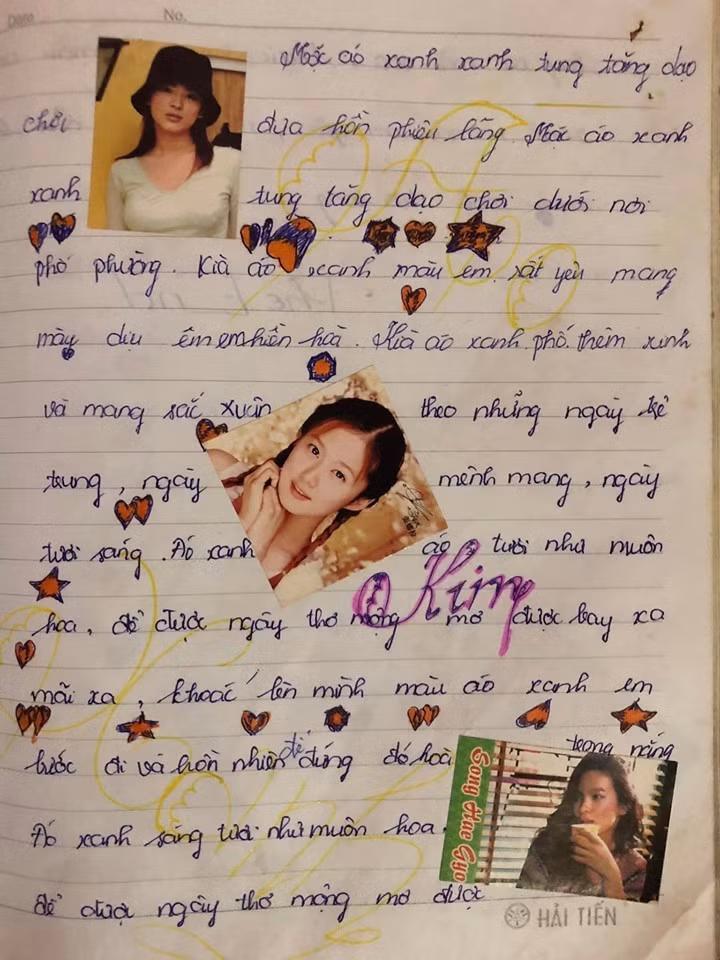 Date No.
Mặc áo xanh xanh tung tăng dạo
chơi đưa hồn phiêu lãng Mặc áo xanh
xanh tung tăng dạo chơi dưới nơi
phố phường. Kià áo xanh màu em rất yêu mang
mày dịu êm em hiền hoà. Kià áo xanh phố thêm xinh
và mang sắc xuân theo những ngày trẻ
trung, ngày mênh mang, ngày
tươi sáng. Áó xanh áo tươi như muôn
Kim
hoa, để được ngây thơ mộng mơ được bay xa
mãi xa, khoác lên mình màu áo xanh em
bước đi và hồn nhiên để đứng đó hoà trong nắng
Song Hae Gyo
Áó xanh sáng tươi như muôn hoa
để được ngây thơ mộng mơ được
HẢI TIẾN